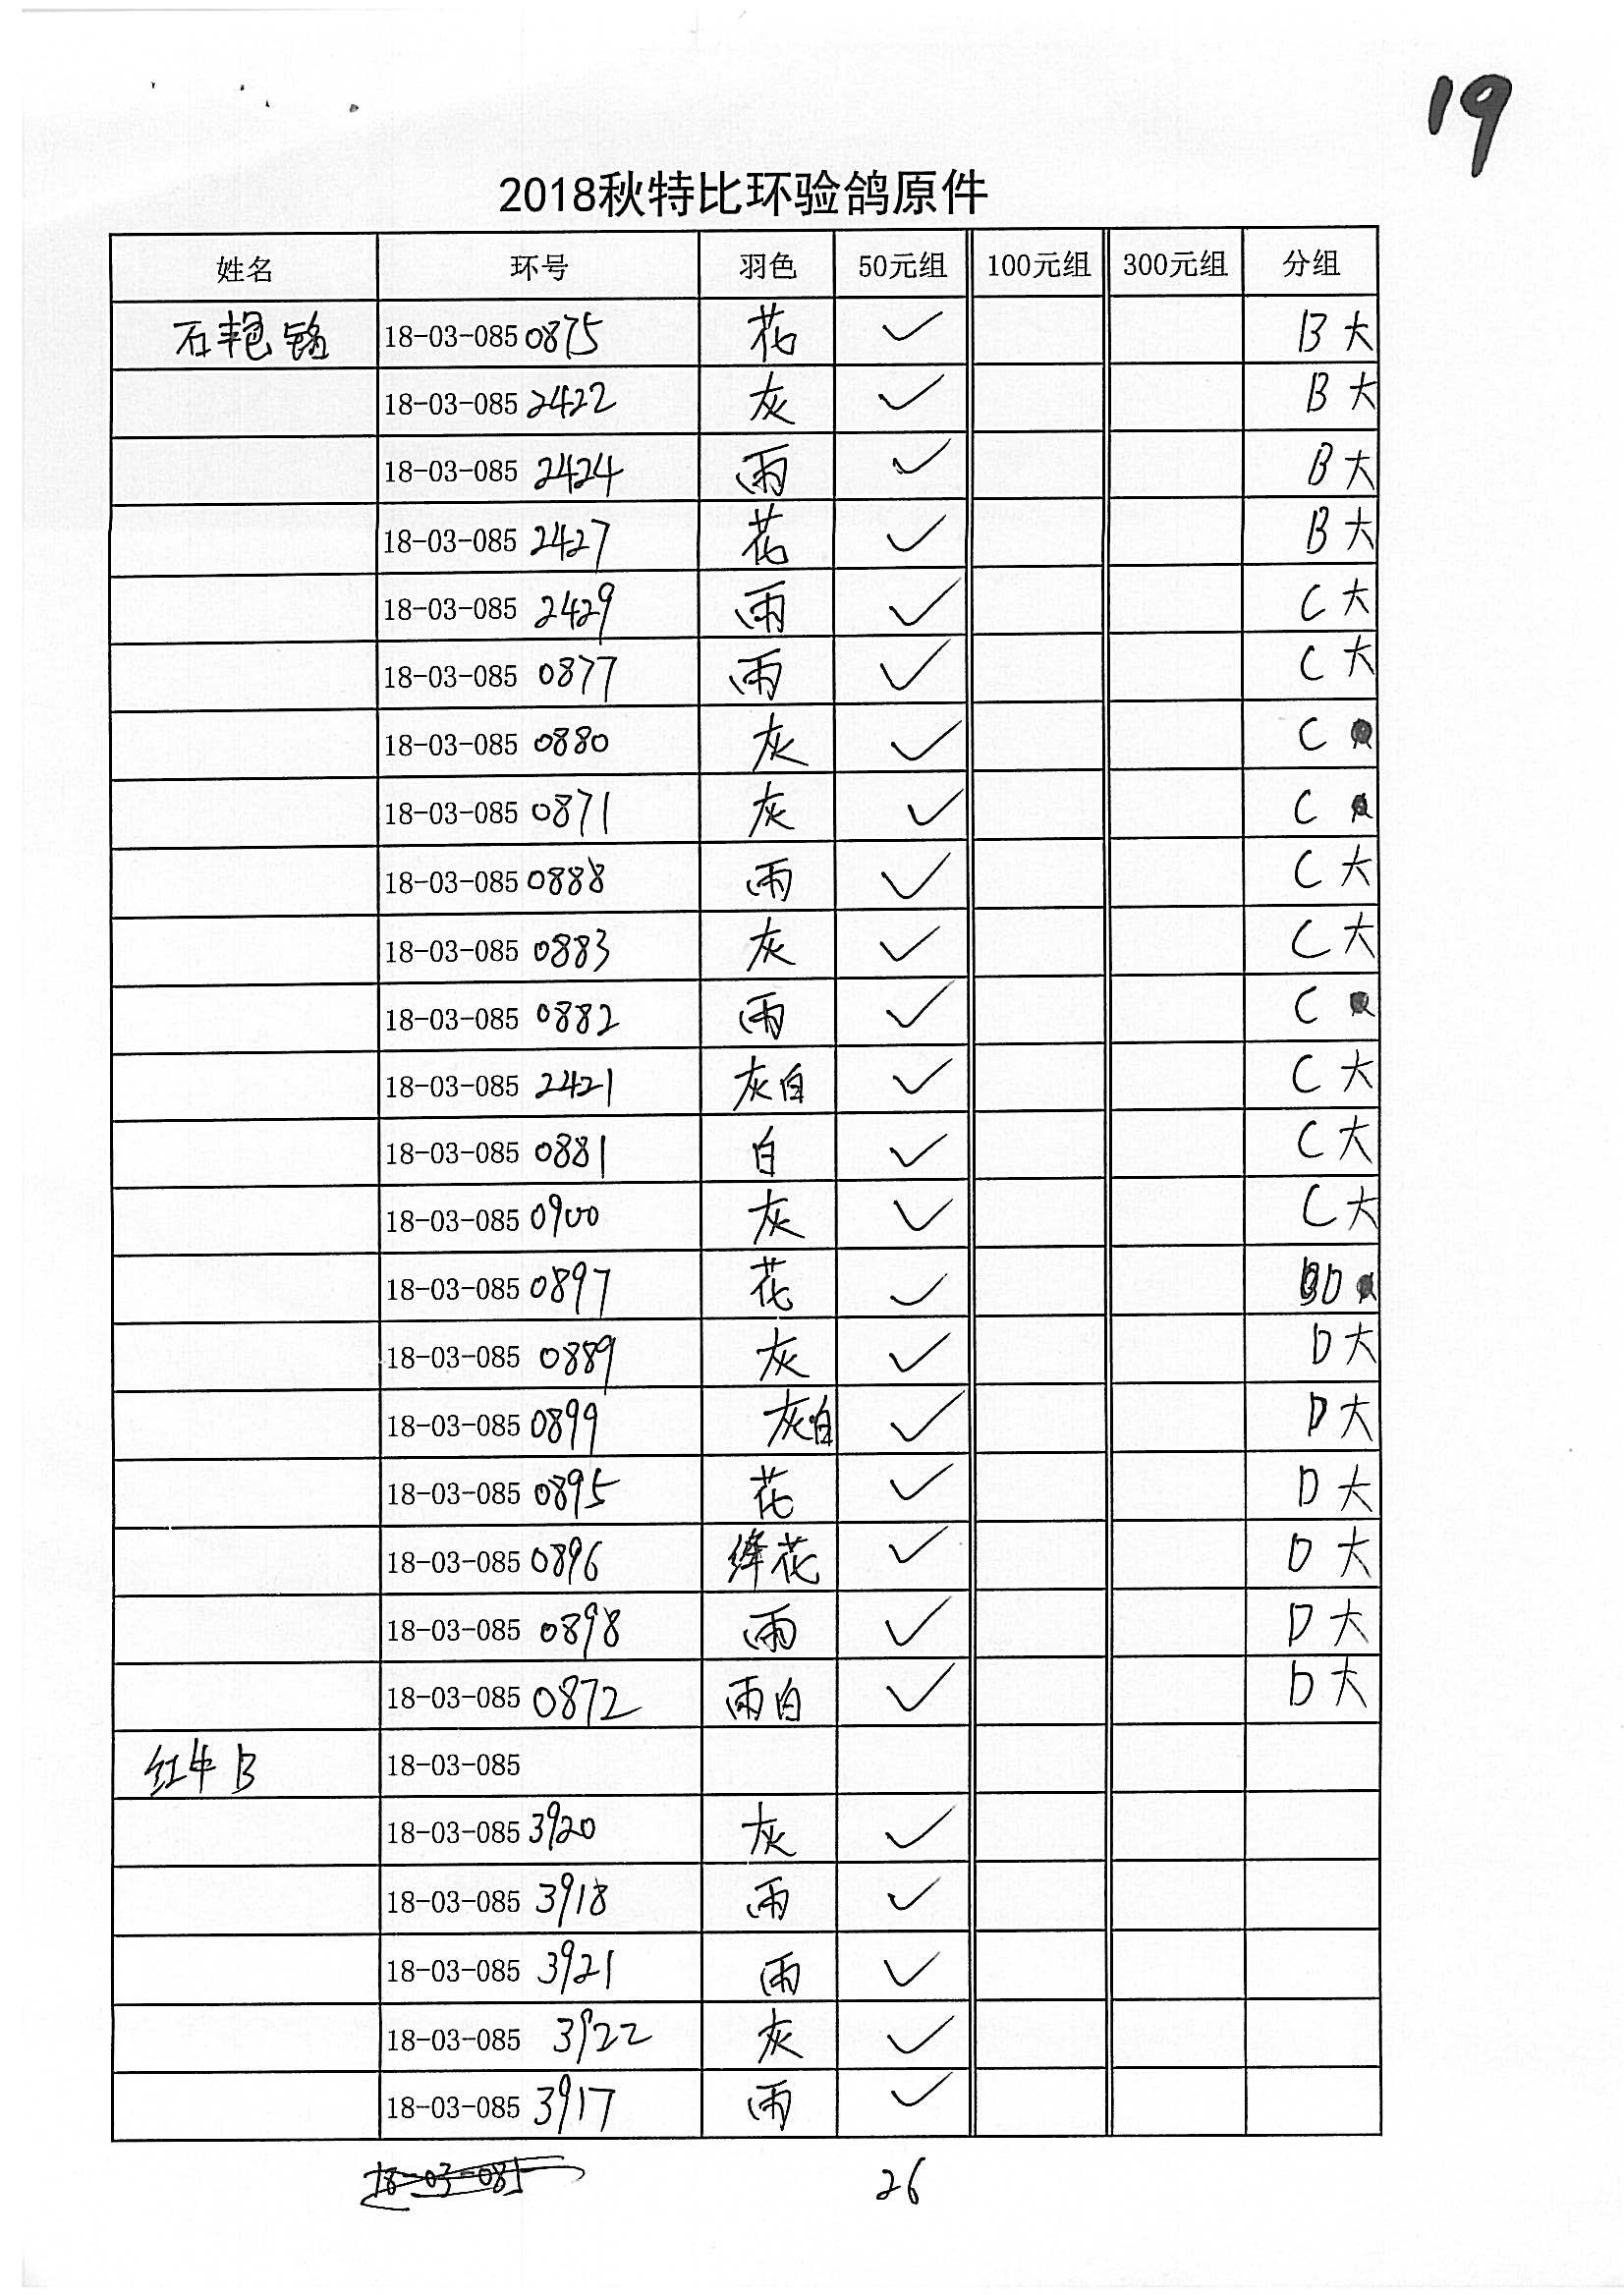 19
2018秋特比环验鸽原件
姓名 环号 羽色 50元组 100元组 300元组 分组
石艳铭 18-03-085 0875 花 ✓ B 大
18-03-085 2422 灰 ✓ B 大
18-03-085 2424 雨 ✓ B 大
18-03-085 2427 花 ✓ B 大
18-03-085 2429 雨 ✓ C 大
18-03-085 0877 雨 ✓ C 大
18-03-085 0880 灰 ✓ C
18-03-085 0871 灰 ✓ C
18-03-085 0888 雨 ✓ C 大
18-03-085 0883 灰 ✓ C 大
18-03-085 0882 雨 ✓ C
18-03-085 2421 灰白 ✓ C 大
18-03-085 0881 白 ✓ C 大
18-03-085 0900 灰 ✓ C 大
18-03-085 0897 花 ✓ D
18-03-085 0889 灰 ✓ D 大
18-03-085 0899 灰白 ✓ D 大
18-03-085 0895 花 ✓ D 大
18-03-085 0896 绛花 ✓ D 大
18-03-085 0898 雨 ✓ D 大
18-03-085 0872 雨白 ✓ D 大
红牛B 18-03-085
18-03-085 3920 灰 ✓
18-03-085 3918 雨 ✓
18-03-085 3921 雨 ✓
18-03-085 3922 灰 ✓
18-03-085 3917 雨 ✓
18-03-085 26